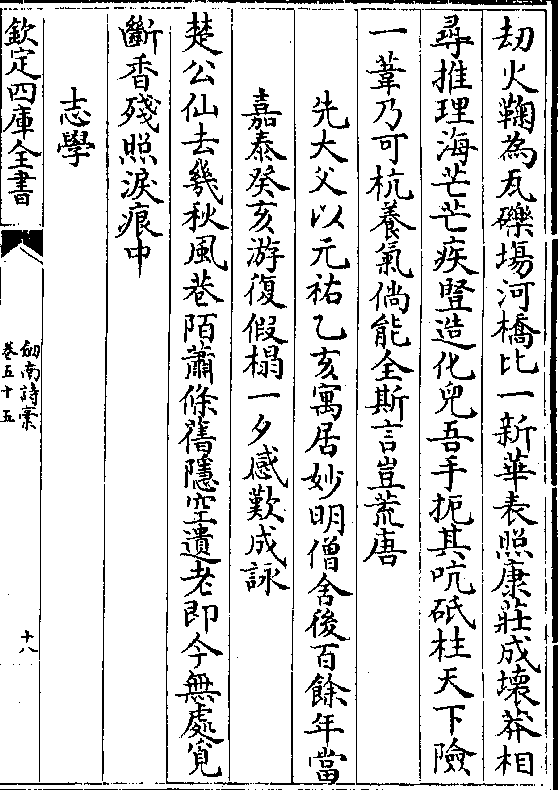 刼火鞠為瓦礫塲河橋比一新華表照康莊成壊莽相
尋推理海芒芒疾豎造化兒吾手扼其吭砥柱天下險
一葦乃可杭養氣倘能全斯言豈荒唐
先大父以元祐乙亥寓居妙明僧舍後百餘年當
嘉泰癸亥游復假榻一夕感歎成詠
楚公仙去幾秋風巷陌蕭條舊隱空遺老即今無處覓
斷香殘照淚痕中
志學
欽定四庫全書
劒南詩稾
卷五十五
十八